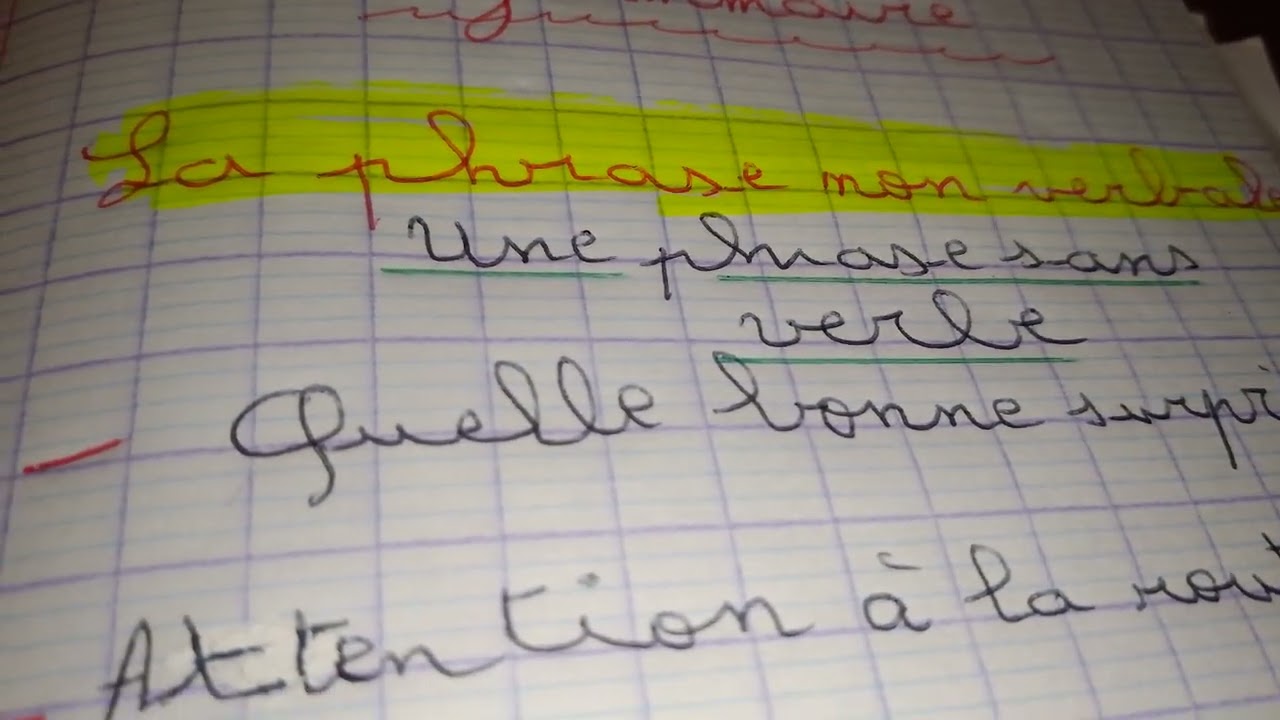 La phrase non verbale
Une phrase sans
verbe
Quelle bonne
Attention à la